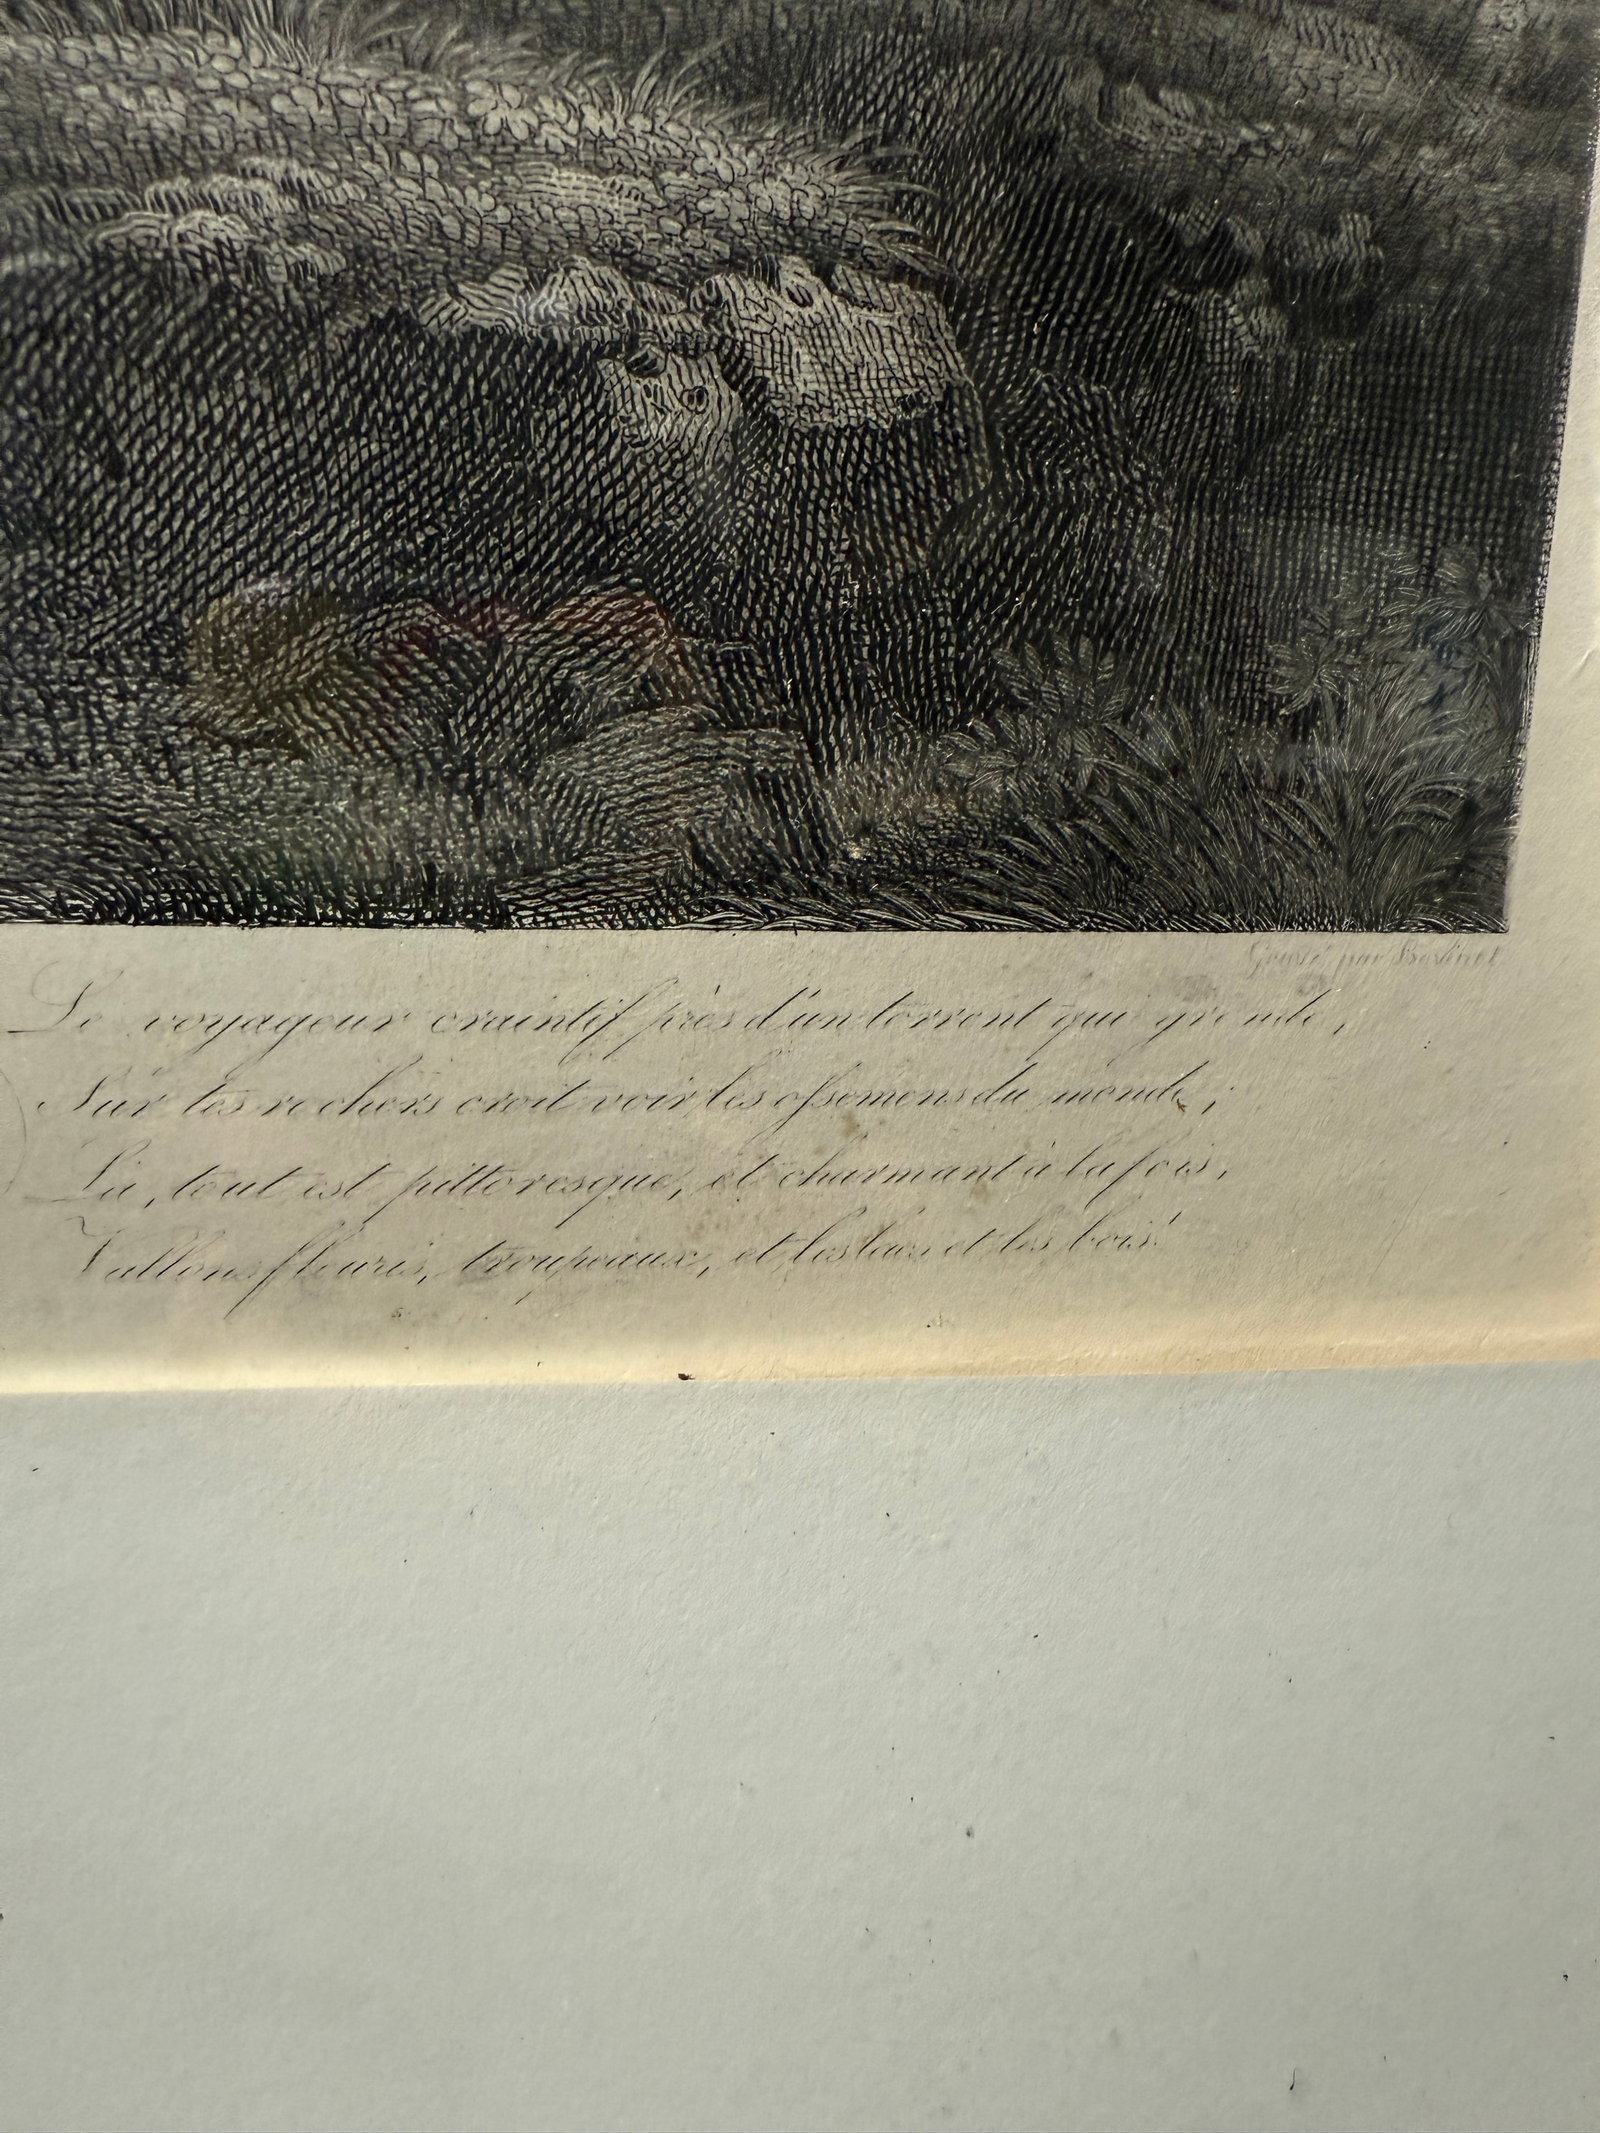 Gravé par
Le voyageur craintif près d'un torrent qui gronde,
Sur tes rochers croit voir les ossemens du monde;
Là, tout est pittoresque, et charmant à la fois,
Vallons fleuris, troupeaux, et les lacs et les bois!